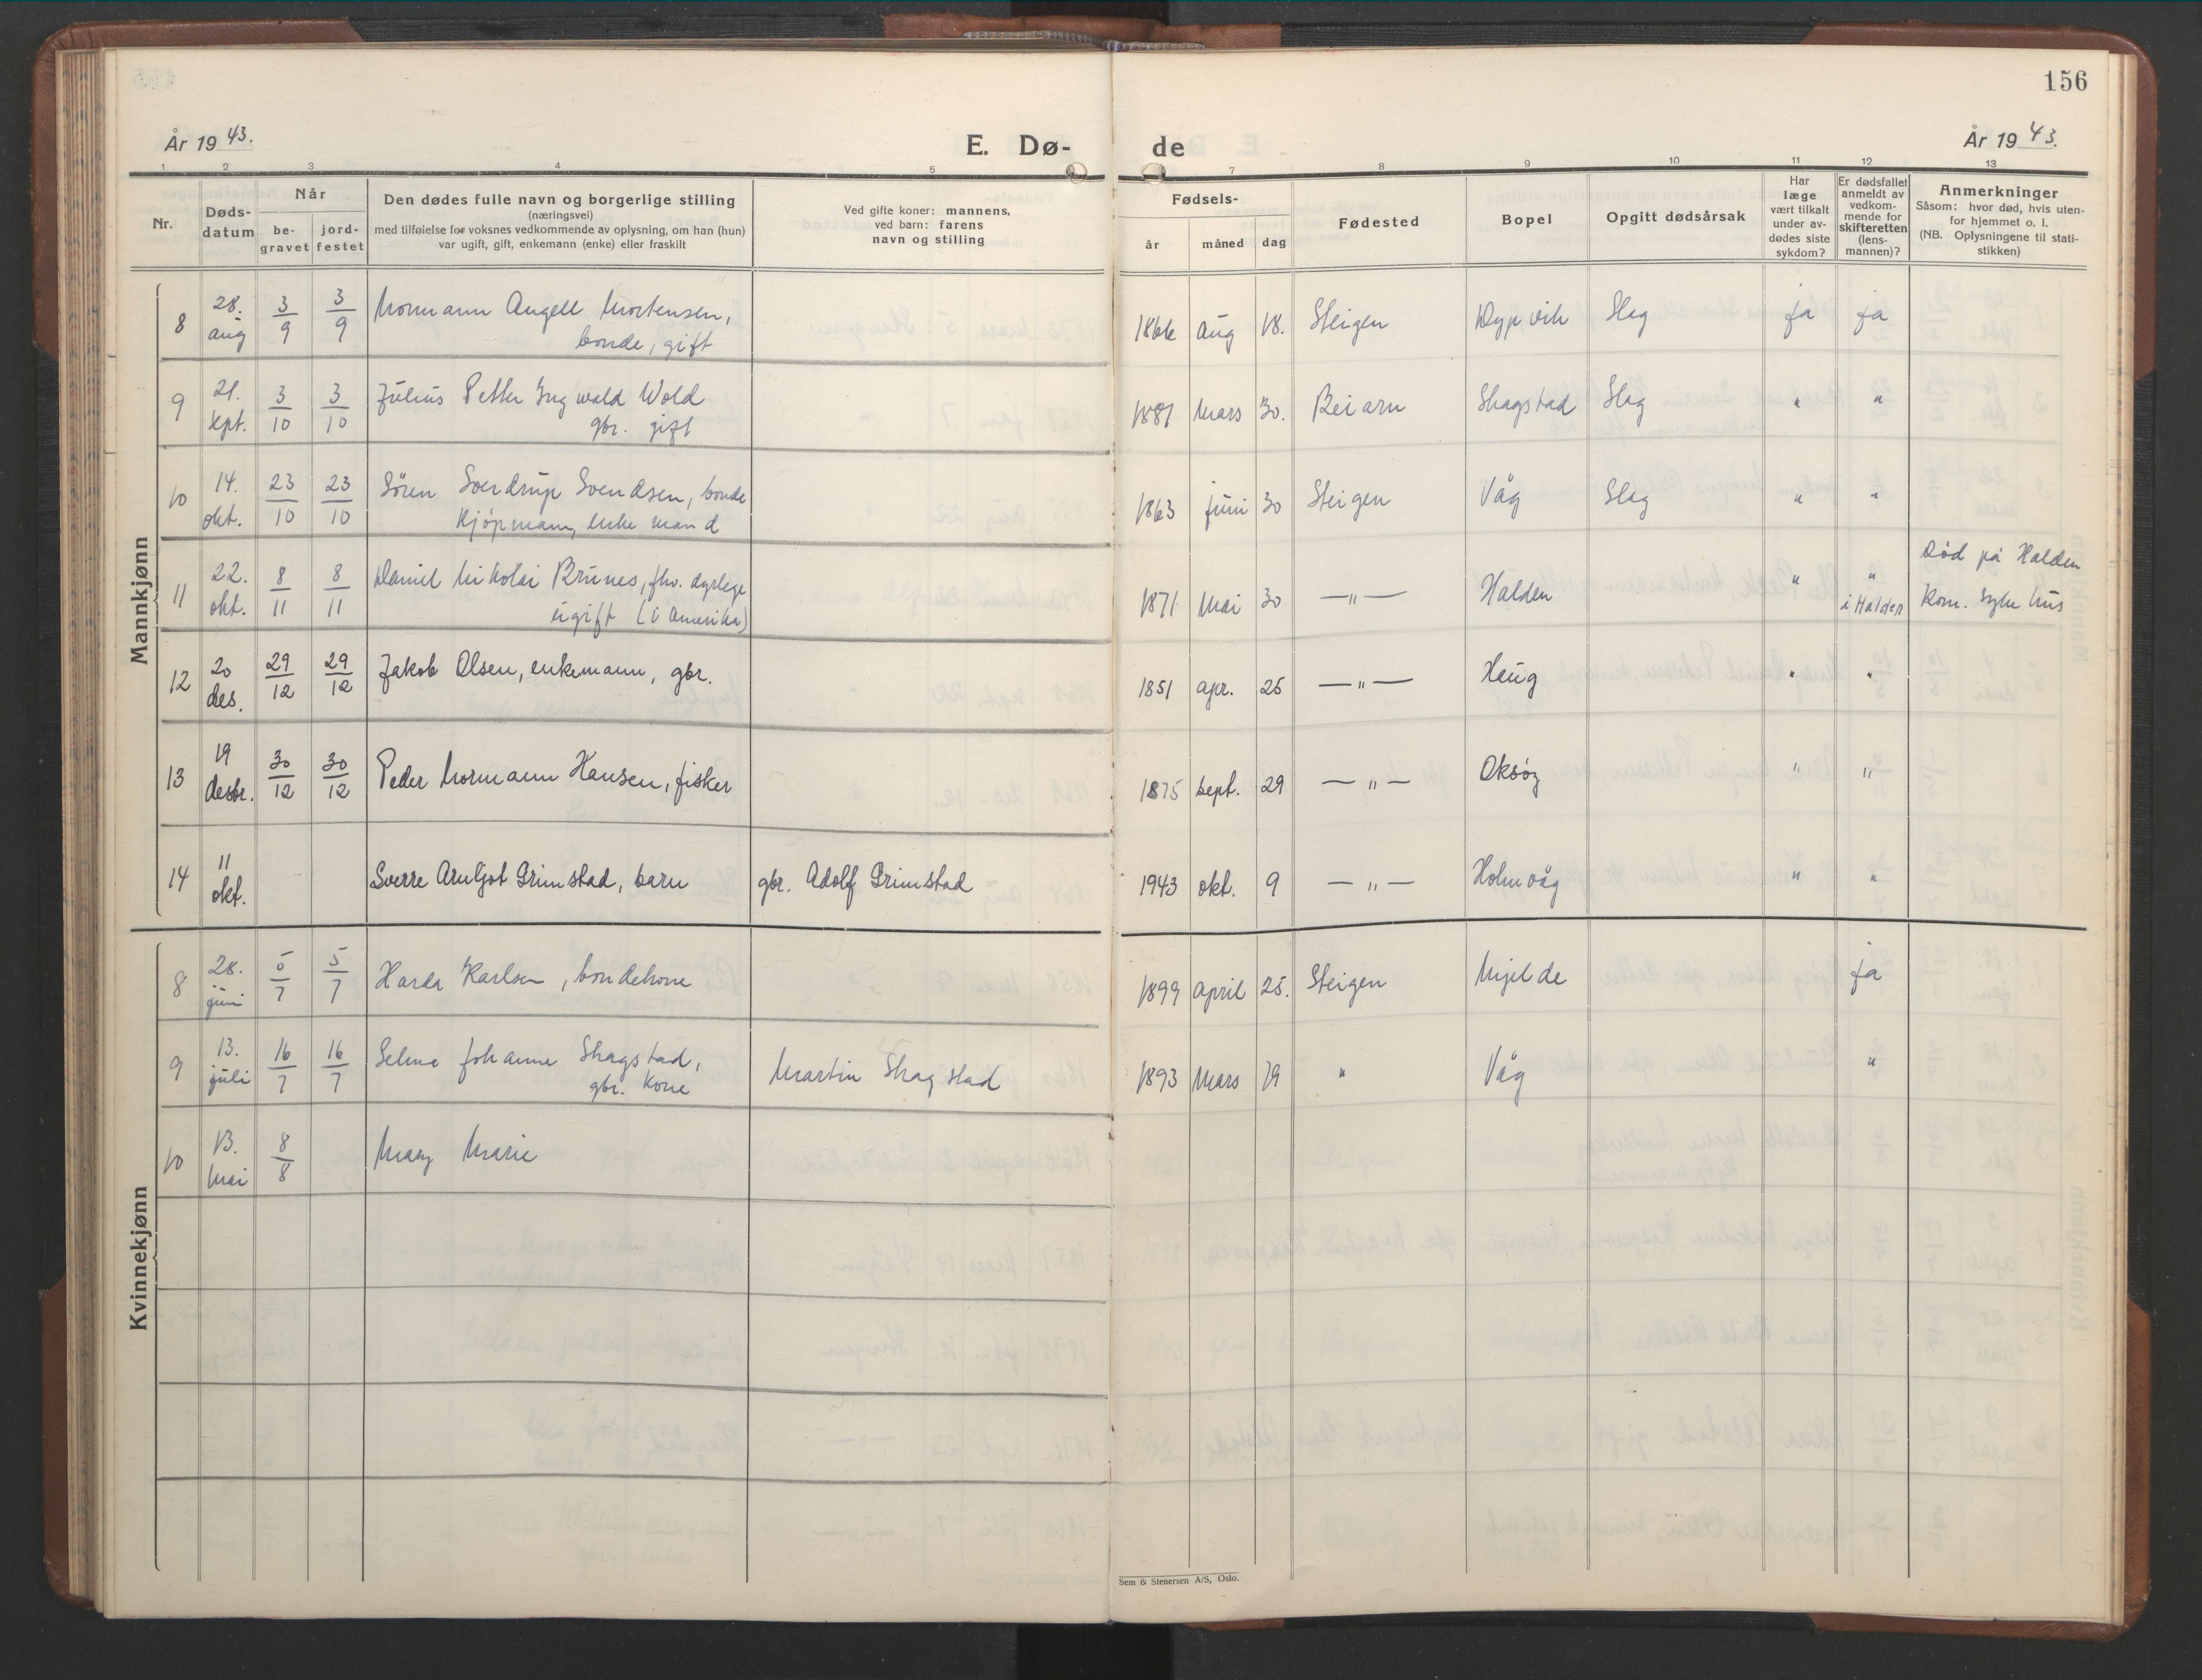 156
År 1943.
E. Dø-
de
År 1943.
1 2 3 4 5 7 8 9 10 11 12 13
Nr.
Døds-
datum
Når
be-
gravet
jord-
festet
Den dødes fulle navn og borgerlige stilling
(næringsvei)
med tilføielse for voksnes vedkommende av oplysning, om han (hun)
var ugift, gift, enkemann (enke) eller fraskilt
Ved gifte koner: mannens,
ved barn: farens
navn og stilling
Fødsels-
år måned dag
Fødested
Bopel
Opgitt dødsårsak
Har
læge
vært tilkalt
under av-
dødes siste
sykdom?
Er dødsfallet
anmeldt av
vedkom-
mende for
skifteretten
(lens-
mannen)?
Anmerkninger
Såsom: hvor død, hvis uten-
for hjemmet o. l.
(NB. Oplysningene til stati-
stikken)
Mannkjønn
8 28. aug 3/9 3/9 Normann Angell Mortensen, 1866 Aug 18. Steigen Dypvik Slag ja ja
bonde, gift
9 21. sept. 3/10 3/10 Julius Petter Ingwald Wold 1881 Mars 30. Beiarn Skagstad Slag " "
gbr. gift
10 14. okt. 23/10 23/10 Sören Sverdrup Svendsen, bonde 1863 juni 30 Steigen Våg Slag " "
kjøpmann, enkemand
11 22. okt. 8/11 8/11 Daniel Nikolai Brunes, fhv. dyrlege 1871 Mai 30 —"— Halden " " i Halden Död på Halden
ugift (i Amerika) Kom. sykehus
12 20 des. 29/12 29/12 Jakob Olsen, enkemann, gbr. 1851 apr. 25 —"— Haug " "
13 19 desbr. 30/12 30/12 Peder Normann Hansen, fisker 1875 sept. 29 —"— Oksøy " "
14 11 okt. Sverre Arnljot Grimstad, barn gbr. Adolf Grimstad 1943 okt. 9 —"— Holmvåg " "
Kvinnekjønn
8 28. juni 5/7 5/7 Harda Karlsen, bondekone 1899 April 25. Steigen Mjelde ja
9 13. juli 16/7 16/7 Selma Johanne Skagstad, Martin Skagstad 1893 Mars 19 " Våg "
gbr. kone
10 13. Mai 8/8 Mary Marie
Sem & Stenersen A/S, Oslo.